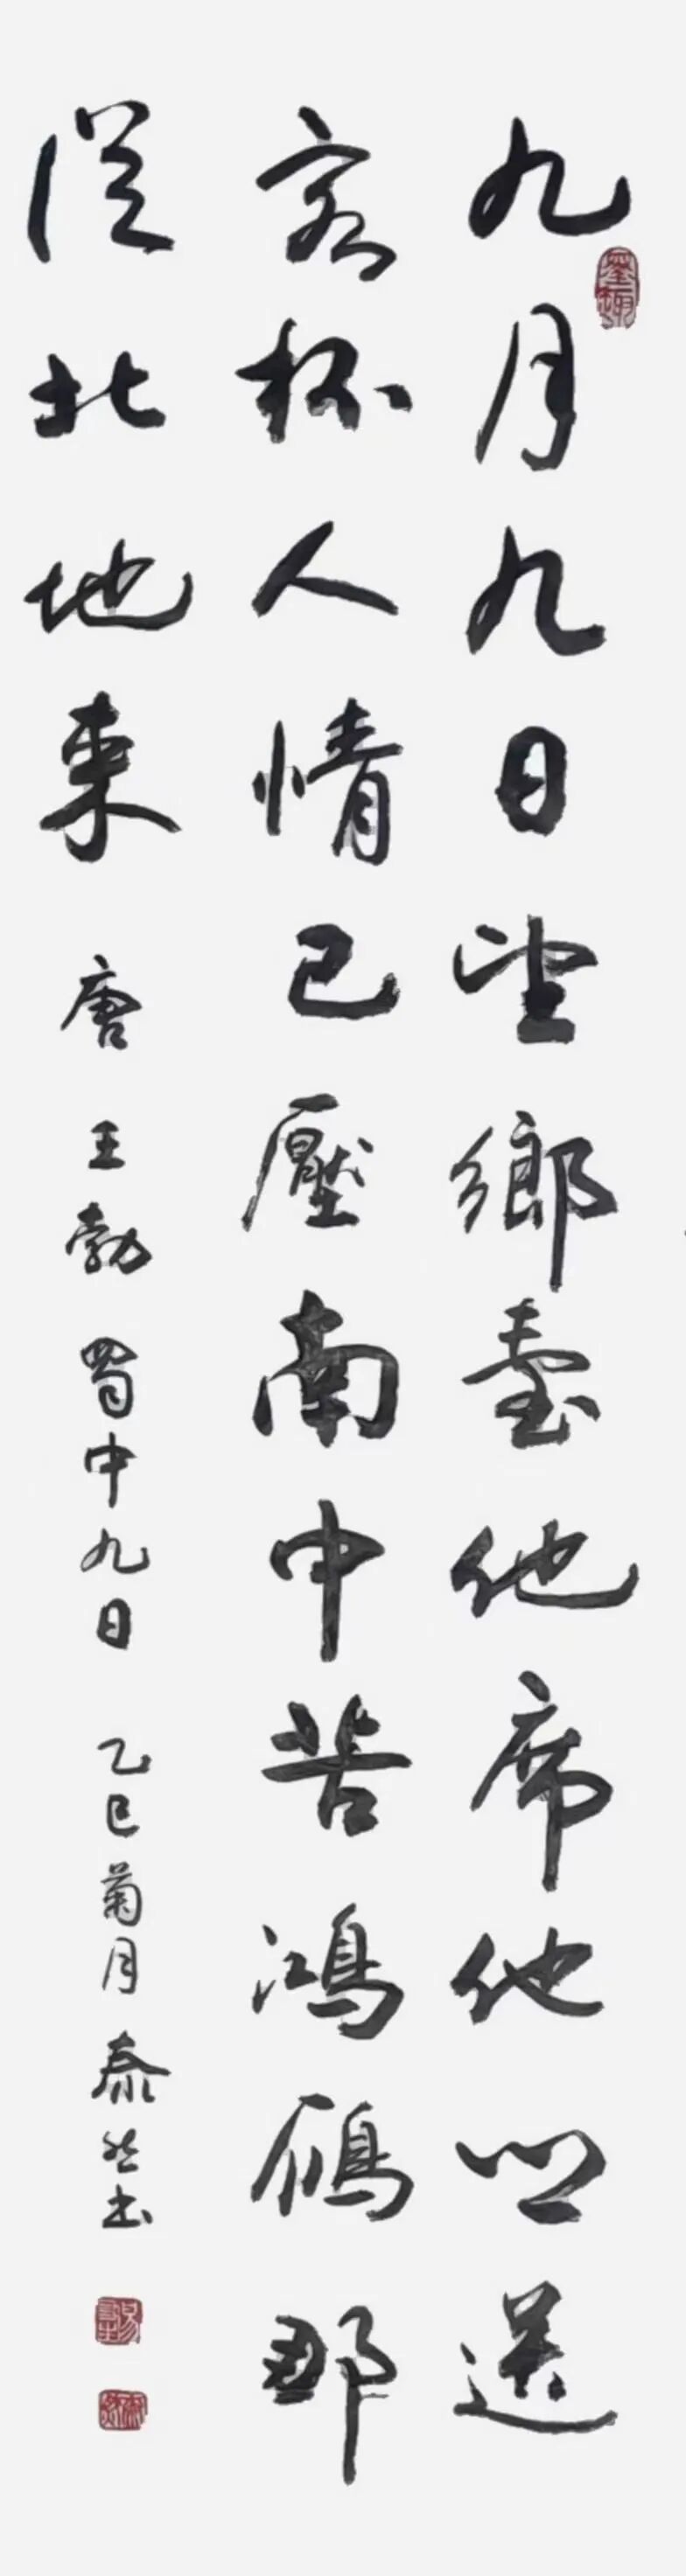 九月九日望鄉臺他席他鄉送
客杯人情已壓南中苦鴻雁那
從北地來 唐 王勃 蜀中九日 乙巳菊月 泰然書